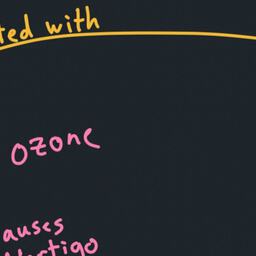 ted with
ozone
auses
Vertigo